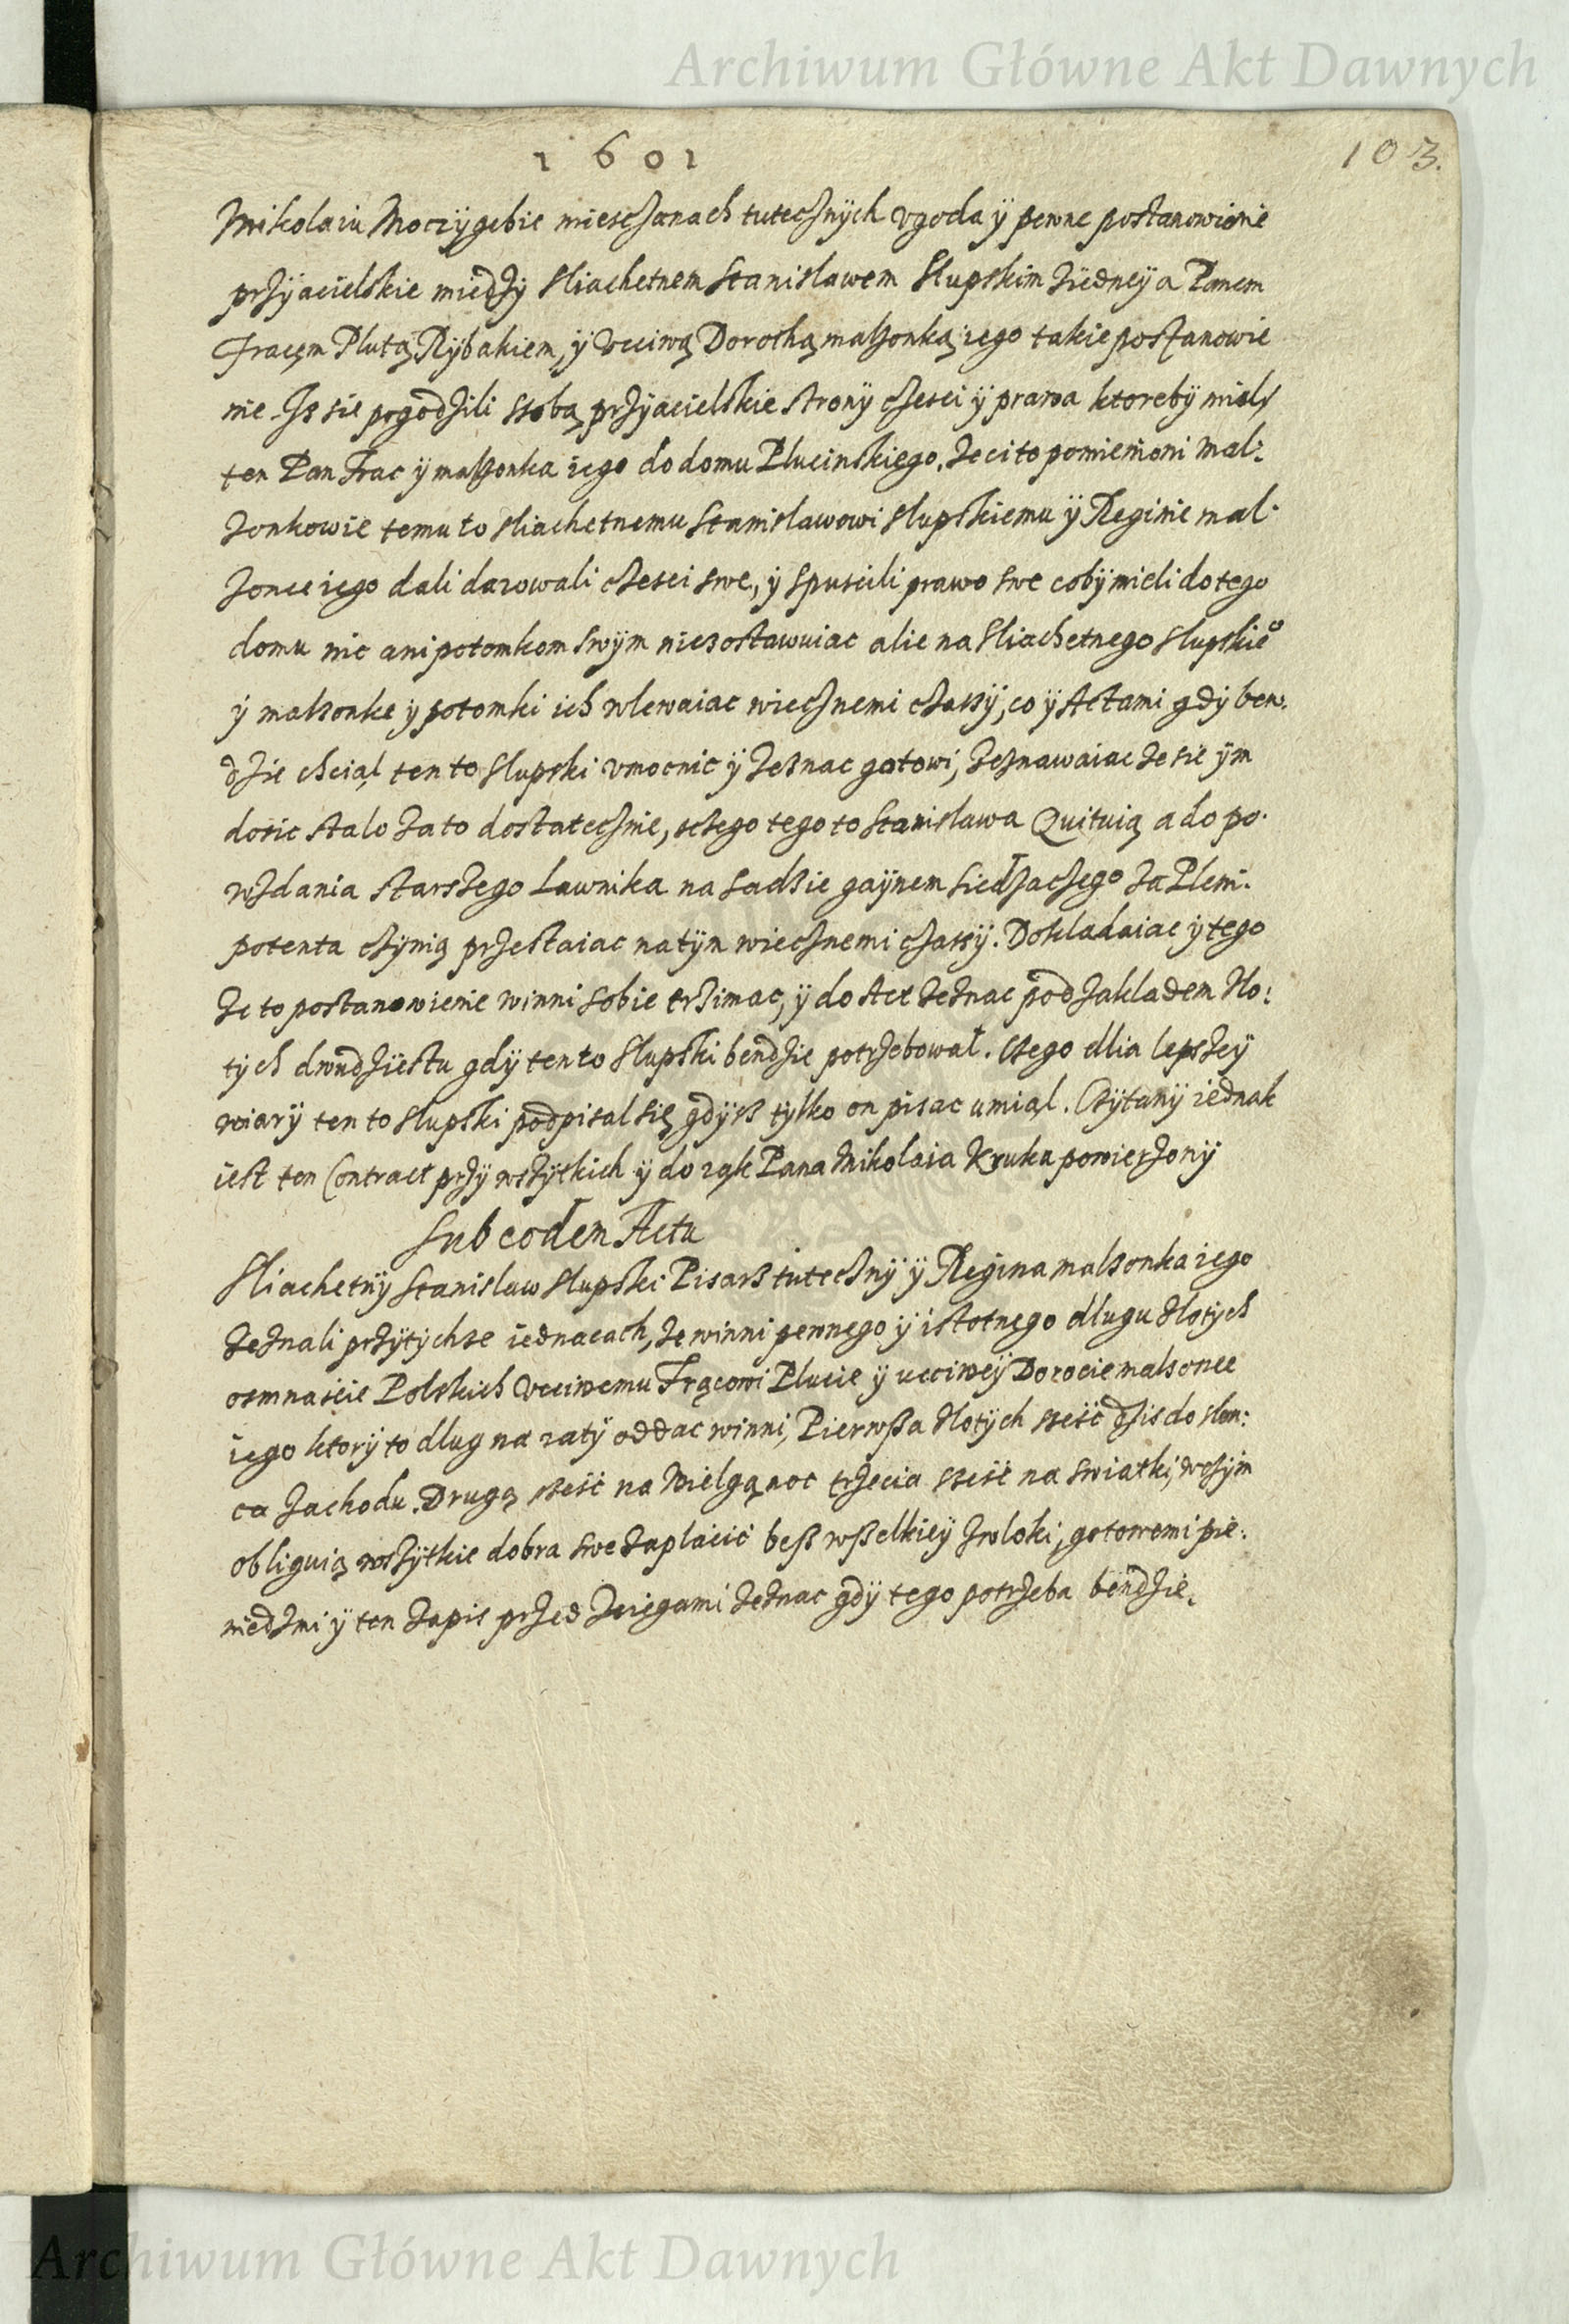 Archiwum Główne Akt Dawnych
1601
103.
Mikolaiu Moczÿgebie miesczanach tutecznÿch vgoda ÿ pewne postanowienie
przÿacielskie miedzÿ sliachetnem Stanislawem Slupskim ziedneÿ a Panem
Fracęm Plutą Rÿbakiem, ÿ vcciwą Dorothą malzonką iego takie postanowie
nie Iz sie pogodzili szobą przÿacielskie stronÿ czesci ÿ prawa ktorebÿ mielÿ
ten Pan Frac ÿ malzonka iego do domu Plucinskiego. Ze cito pomienieni mal:
zonkowie temu to sliachetnemu Stanislawowi Slupskiemu ÿ Reginie mal:
zonce iego dali darowali czesci swe, ÿ spuscili prawo swe cobÿ mieli do tego
domu nic ani potomkom swÿm niezostawuiac alie na sliachetnego Slupskie°
ÿ malzonke ÿ potomki ich wlewaiac wiecznemi czassÿ, co ÿ Actami gdÿ ben:
dzie chciał ten to Slupski vmocnic ÿ zeznac gotowi, zeznawaiac ze sie ÿm
dosic stalo za to dostatecznie, sczego tego to Stanislawa Quituią a do po:
wzdania starszego Lawnika na sadzie gaÿnem siedzaczego za Pleni:
potenta czÿnią przestaiac natÿm wiecznemi czassÿ. Dokladaiac ÿ tego
Ze to postanowienie winni sobie trzimac, ÿ do Act zeznac pod zakladem zlo:
tÿch dwudziestu gdÿ ten to Slupski bendzie potrzebował. Czego dlia lepszeÿ
wiarÿ ten to Slupski podpisal się gdÿsz tÿlko on pisac umiał. Czÿtanÿ iednak
iest ten Contract przÿ wszÿtkich ÿ do rąk Pana Mikolaia Kruka powierzonÿ
Sub eodem Actu
Sliachetnÿ Stanislaw Slupski Pisarz tutecznÿ ÿ Regina malzonka iego
zeznali przÿ tÿchze iednacach, ze winni pewnego ÿ istotnego dlugu zlotÿch
osmnaście Polskich vcciwemu Frącowi Plucie ÿ ucciweÿ Dorocie malzonce
iego ktorÿ to dlug na ratÿ oddac winni, Pierwßa zlotÿch sześć dzis do slon:
ca zachodu. Drugą sześć na Wielgą noc trzecia sześć na swiatki, wczÿm
obliguią wszÿtkie dobra swe zaplacić beß wßelkieÿ zwloki, gotowemi pie:
niedzmi ÿ ten zapis przed xiegami zeznac gdÿ tego potrzeba bendzie.
Archiwum Główne Akt Dawnych